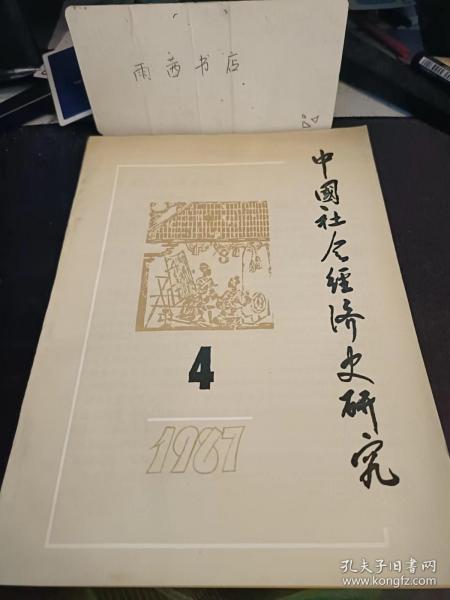 雨茜书店
中國社会經济史研究
4
1987
孔夫子旧书网
www.kongfz.com